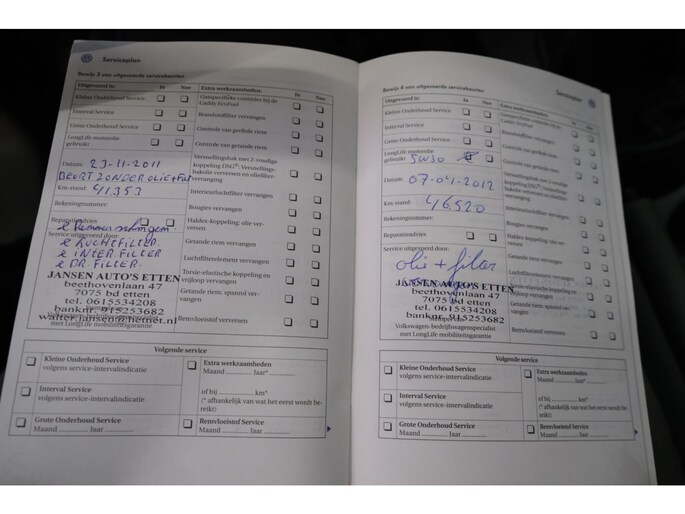 Serviceplan
Bewijs 3 van uitgevoerde servicebeurten
Uitgevoerd is:
Ja
Nee
Extra werkzaamheden:
Ja
Nee
Kleine Onderhoud Service
Interval Service
Grote Onderhoud Service
LongLife motorolie
gebruikt
Gasspecifieke controles bij de
Caddy EcoFuel
Brandstoffilter vervangen
Controle van geribde riem
Controle van getande riem
Versnellingsbak met 2-voudige
koppeling DSG®: Versnellings-
bakolie verversen en oliefilter-
vervanging
Interieurluchtfilter vervangen
Bougies vervangen
Haldex-koppeling: olie ver-
versen
Getande riem vervangen
Luchtfilterelement vervangen
Torsie-elastische koppeling en
vrijloop vervangen
Getande riem: spanrol ver-
vangen
Remvloeistof verversen
Datum: 23-11-2011
BEURT ZONDER OLIE+FILT
Km-stand: 41.353
Rekeningnummer:
Reparatieadvies
Service uitgevoerd door:
LUCHTFILTER
INTER FILTER
BR. FILTER
JANSEN AUTO'S ETTEN
beethovenlaan 47
7075 bd etten
tel. 0615534208
banknr. 915253682
walter.jansen@hetnet.nl
met LongLife mobiliteitsgarantie
Volgende service
Kleine Onderhoud Service
volgens service-intervalindicatie
Interval Service
volgens service-intervalindicatie
Grote Onderhoud Service
Maand ............ Jaar ............
Extra werkzaamheden
Maand ............ Jaar* ............
of bij ............ km*
(* afhankelijk van wat het eerst wordt be-
reikt)
Remvloeistof Service
Maand ............ Jaar ............
Serviceplan
Bewijs 4 van uitgevoerde servicebeurten
Uitgevoerd is:
Ja
Nee
Extra werkzaamheden:
Ja
Nee
Kleine Onderhoud Service
Interval Service
Grote Onderhoud Service
LongLife motorolie
gebruikt 5W30
Datum: 07-04-2012
Km-stand: 46520
Rekeningnummer:
Reparatieadvies
Service uitgevoerd door:
olie + filter
JANSEN AUTO'S ETTEN
beethovenlaan 47
7075 bd etten
tel. 0615534208
banknr. 915253682
Volkswagen-bedrijfswagenspecialist
met LongLife mobiliteitsgarantie
Gasspecifieke controles bij de
Caddy EcoFuel
Brandstoffilter vervangen
Controle van geribde riem
Controle van getande riem
Versnellingsbak met 2-voudige
koppeling DSG®: Versnellings-
bakolie verversen en oliefilter-
vervanging
Interieurluchtfilter vervangen
Bougies vervangen
Haldex-koppeling: olie ver-
versen
Getande riem vervangen
Luchtfilterelement vervangen
Torsie-elastische koppeling en
vrijloop vervangen
Getande riem: spanrol ver-
vangen
Remvloeistof verversen
Volgende service
Kleine Onderhoud Service
volgens service-intervalindicatie
Interval Service
volgens service-intervalindicatie
Grote Onderhoud Service
Maand ............ Jaar ............
Extra werkzaamheden
Maand ............ Jaar* ............
of bij ............ km*
(* afhankelijk van wat het eerst wordt be-
reikt)
Remvloeistof Service
Maand ............ Jaar ............